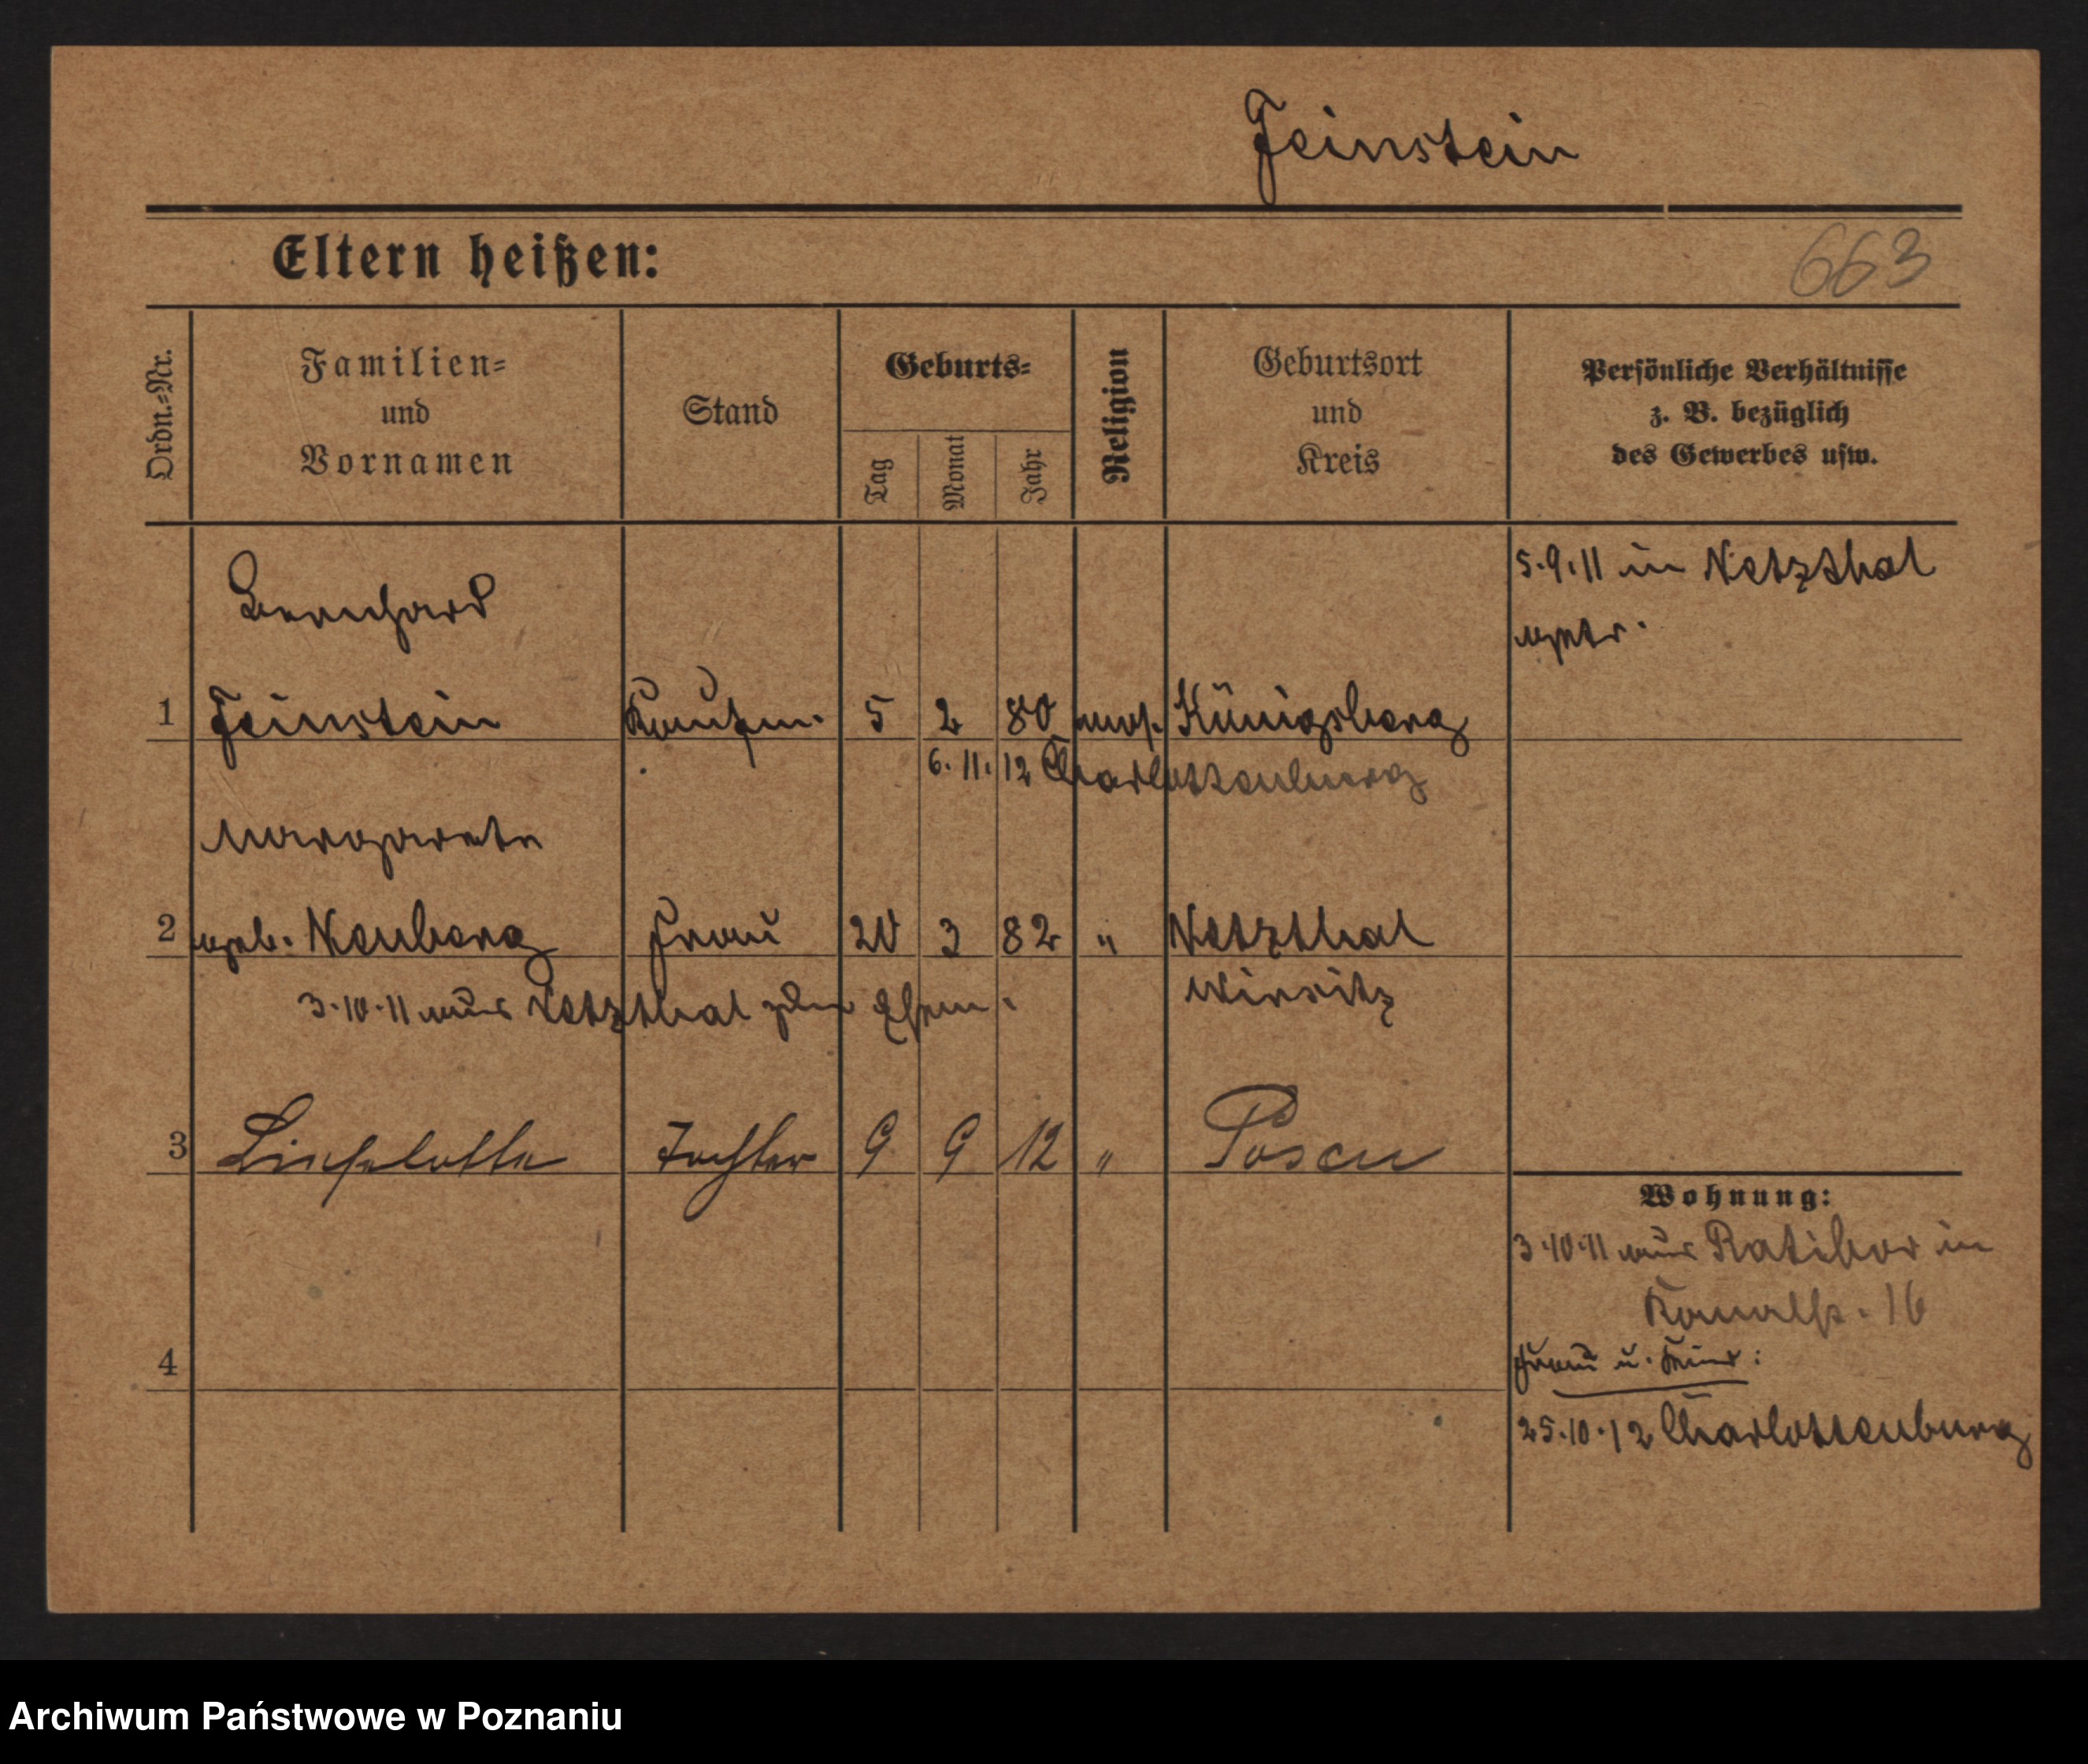 Feinstein
Eltern heißen:
663
Ordn.-Nr.
Familien-
und
Vornamen
Stand
Geburts-
Tag
Monat
Jahr
Religion
Geburtsort
und
Kreis
Persönliche Verhältnisse
z. B. bezüglich
des Gewerbes usw.
5.9.11 in Netzthal
getr.
Bernhard
1 Feinstein Kaufm. 5 2 80 mos. Königsberg
6.11.12 Charlottenburg
Margarete
2 geb. Neuberg Frau 20 3 82 " Netzthal
3.10.11 aus Netzthal zum Ehem.
Wirsitz
3 Lieselotte Tochter 9 9 12 " Posen
Wohnung:
3.10.11 aus Ratibor in
16
4
Frau u. Kind:
25.10.12 Charlottenburg
Archiwum Państwowe w Poznaniu